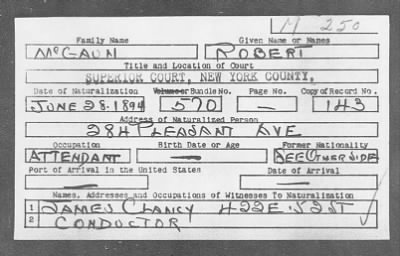 M 250
Family Name Given Name or Names
McGAUN ROBERT
Title and Location of Court
SUPERIOR COURT, NEW YORK COUNTY,
Date of Naturalization Volume or Bundle No. Page No. Copy of Record No.
JUNE 28·1894 570 — 143
Address of Naturalized Person
284 PLEASANT AVE
Occupation Birth Date or Age Former Nationality
ATTENDANT — SEE OTHER SIDE
Port of Arrival in the United States Date of Arrival
— —
Names, Addresses and Occupations of Witnesses To Naturalization
1 JAMES CLANCY 422 E·52 ST
2 CONDUCTOR